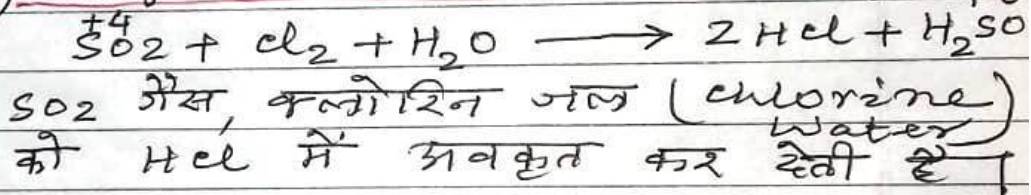 +4
SO2 + Cl₂ + H₂O ⟶ 2HCl + H₂SO
SO2 गैस, क्लोरिन जल (chlorine water)
को HCl में अवकृत कर देती है।